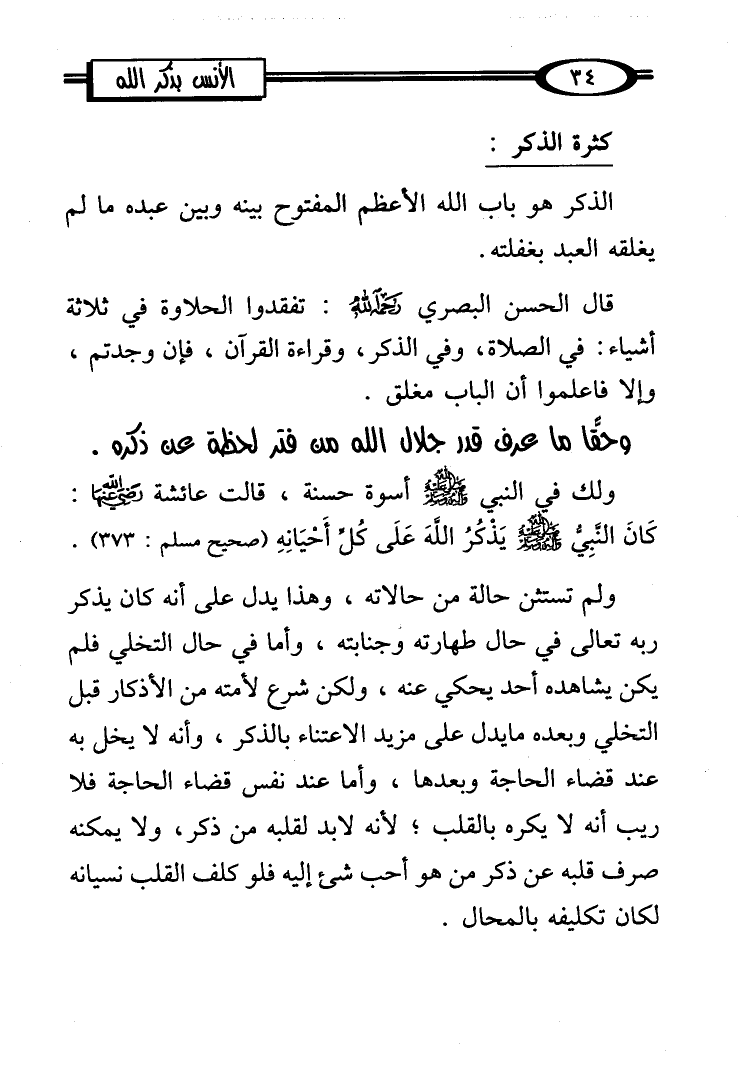 الأنس بذكر الله
٣٤
كثرة الذكر :
الذكر هو باب الله الأعظم المفتوح بينه وبين عبده ما لم
يغلقه العبد بغفلته .
قال الحسن البصري رحمه الله : تفقدوا الحلاوة في ثلاثة
أشياء : في الصلاة، وفي الذكر ، وقراءة القرآن ، فإن وجدتم ،
وإلا فاعلموا أن الباب مغلق .
وحقًّا ما عرف قدر جلال الله من فتر لحظة عن ذكره .
ولك في النبي ﷺ أسوة حسنة ، قالت عائشة رضي الله عنها :
كَانَ النَّبِيُّ ﷺ يَذْكُرُ اللَّهَ عَلَى كُلِّ أَحْيَانِهِ (صحيح مسلم : ٣٧٣) .
ولم تستثن حالة من حالاته ، وهذا يدل على أنه كان يذكر
ربه تعالى في حال طهارته وجنابته ، وأما في حال التخلي فلم
يكن يشاهده أحد يحكي عنه ، ولكن شرع لأمته من الأذكار قبل
التخلي وبعده مايدل على مزيد الاعتناء بالذكر ، وأنه لا يخل به
عند قضاء الحاجة وبعدها ، وأما عند نفس قضاء الحاجة فلا
ريب أنه لا يكره بالقلب ؛ لأنه لابد لقلبه من ذكر، ولا يمكنه
صرف قلبه عن ذكر من هو أحب شئ إليه فلو كلف القلب نسيانه
لكان تكليفه بالمحال .